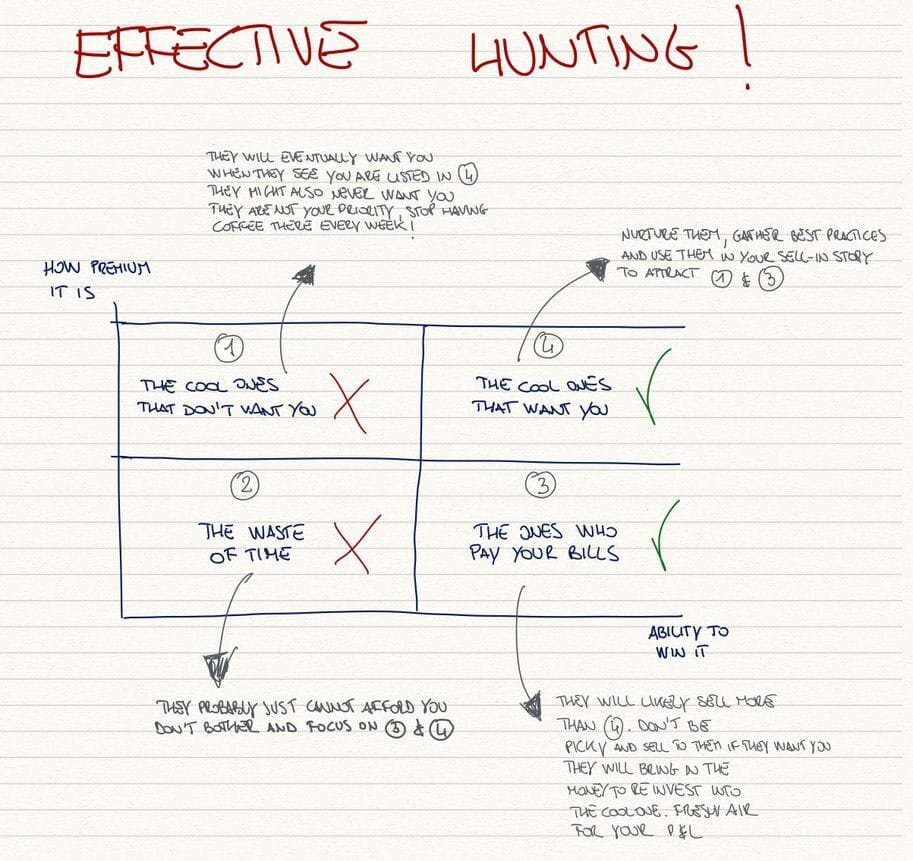 EFFECTIVE HUNTING!
THEY WILL EVENTUALLY WANT YOU
WHEN THEY SEE YOU ARE LISTED IN 4
THEY MIGHT ALSO NEVER WANT YOU
THEY ARE NOT YOUR PRIORITY, STOP HAVING
COFFEE THERE EVERY WEEK!
NURTURE THEM, GATHER BEST PRACTICES
AND USE THEM IN YOUR SELL-IN STORY
TO ATTRACT 1 & 3
HOW PREMIUM
IT IS
1
THE COOL ONES
THAT DON'T WANT YOU
4
THE COOL ONES
THAT WANT YOU
2
THE WASTE
OF TIME
3
THE ONES WHO
PAY YOUR BILLS
ABILITY TO
WIN IT
THEY PROBABLY JUST CANNOT AFFORD YOU
DON'T BOTHER AND FOCUS ON 3 & 4
THEY WILL LIKELY SELL MORE
THAN 4. DON'T BE
PICKY AND SELL TO THEM IF THEY WANT YOU
THEY WILL BRING IN THE
MONEY TO REINVEST INTO
THE COOL ONE. FRESH AIR
FOR YOUR P&L